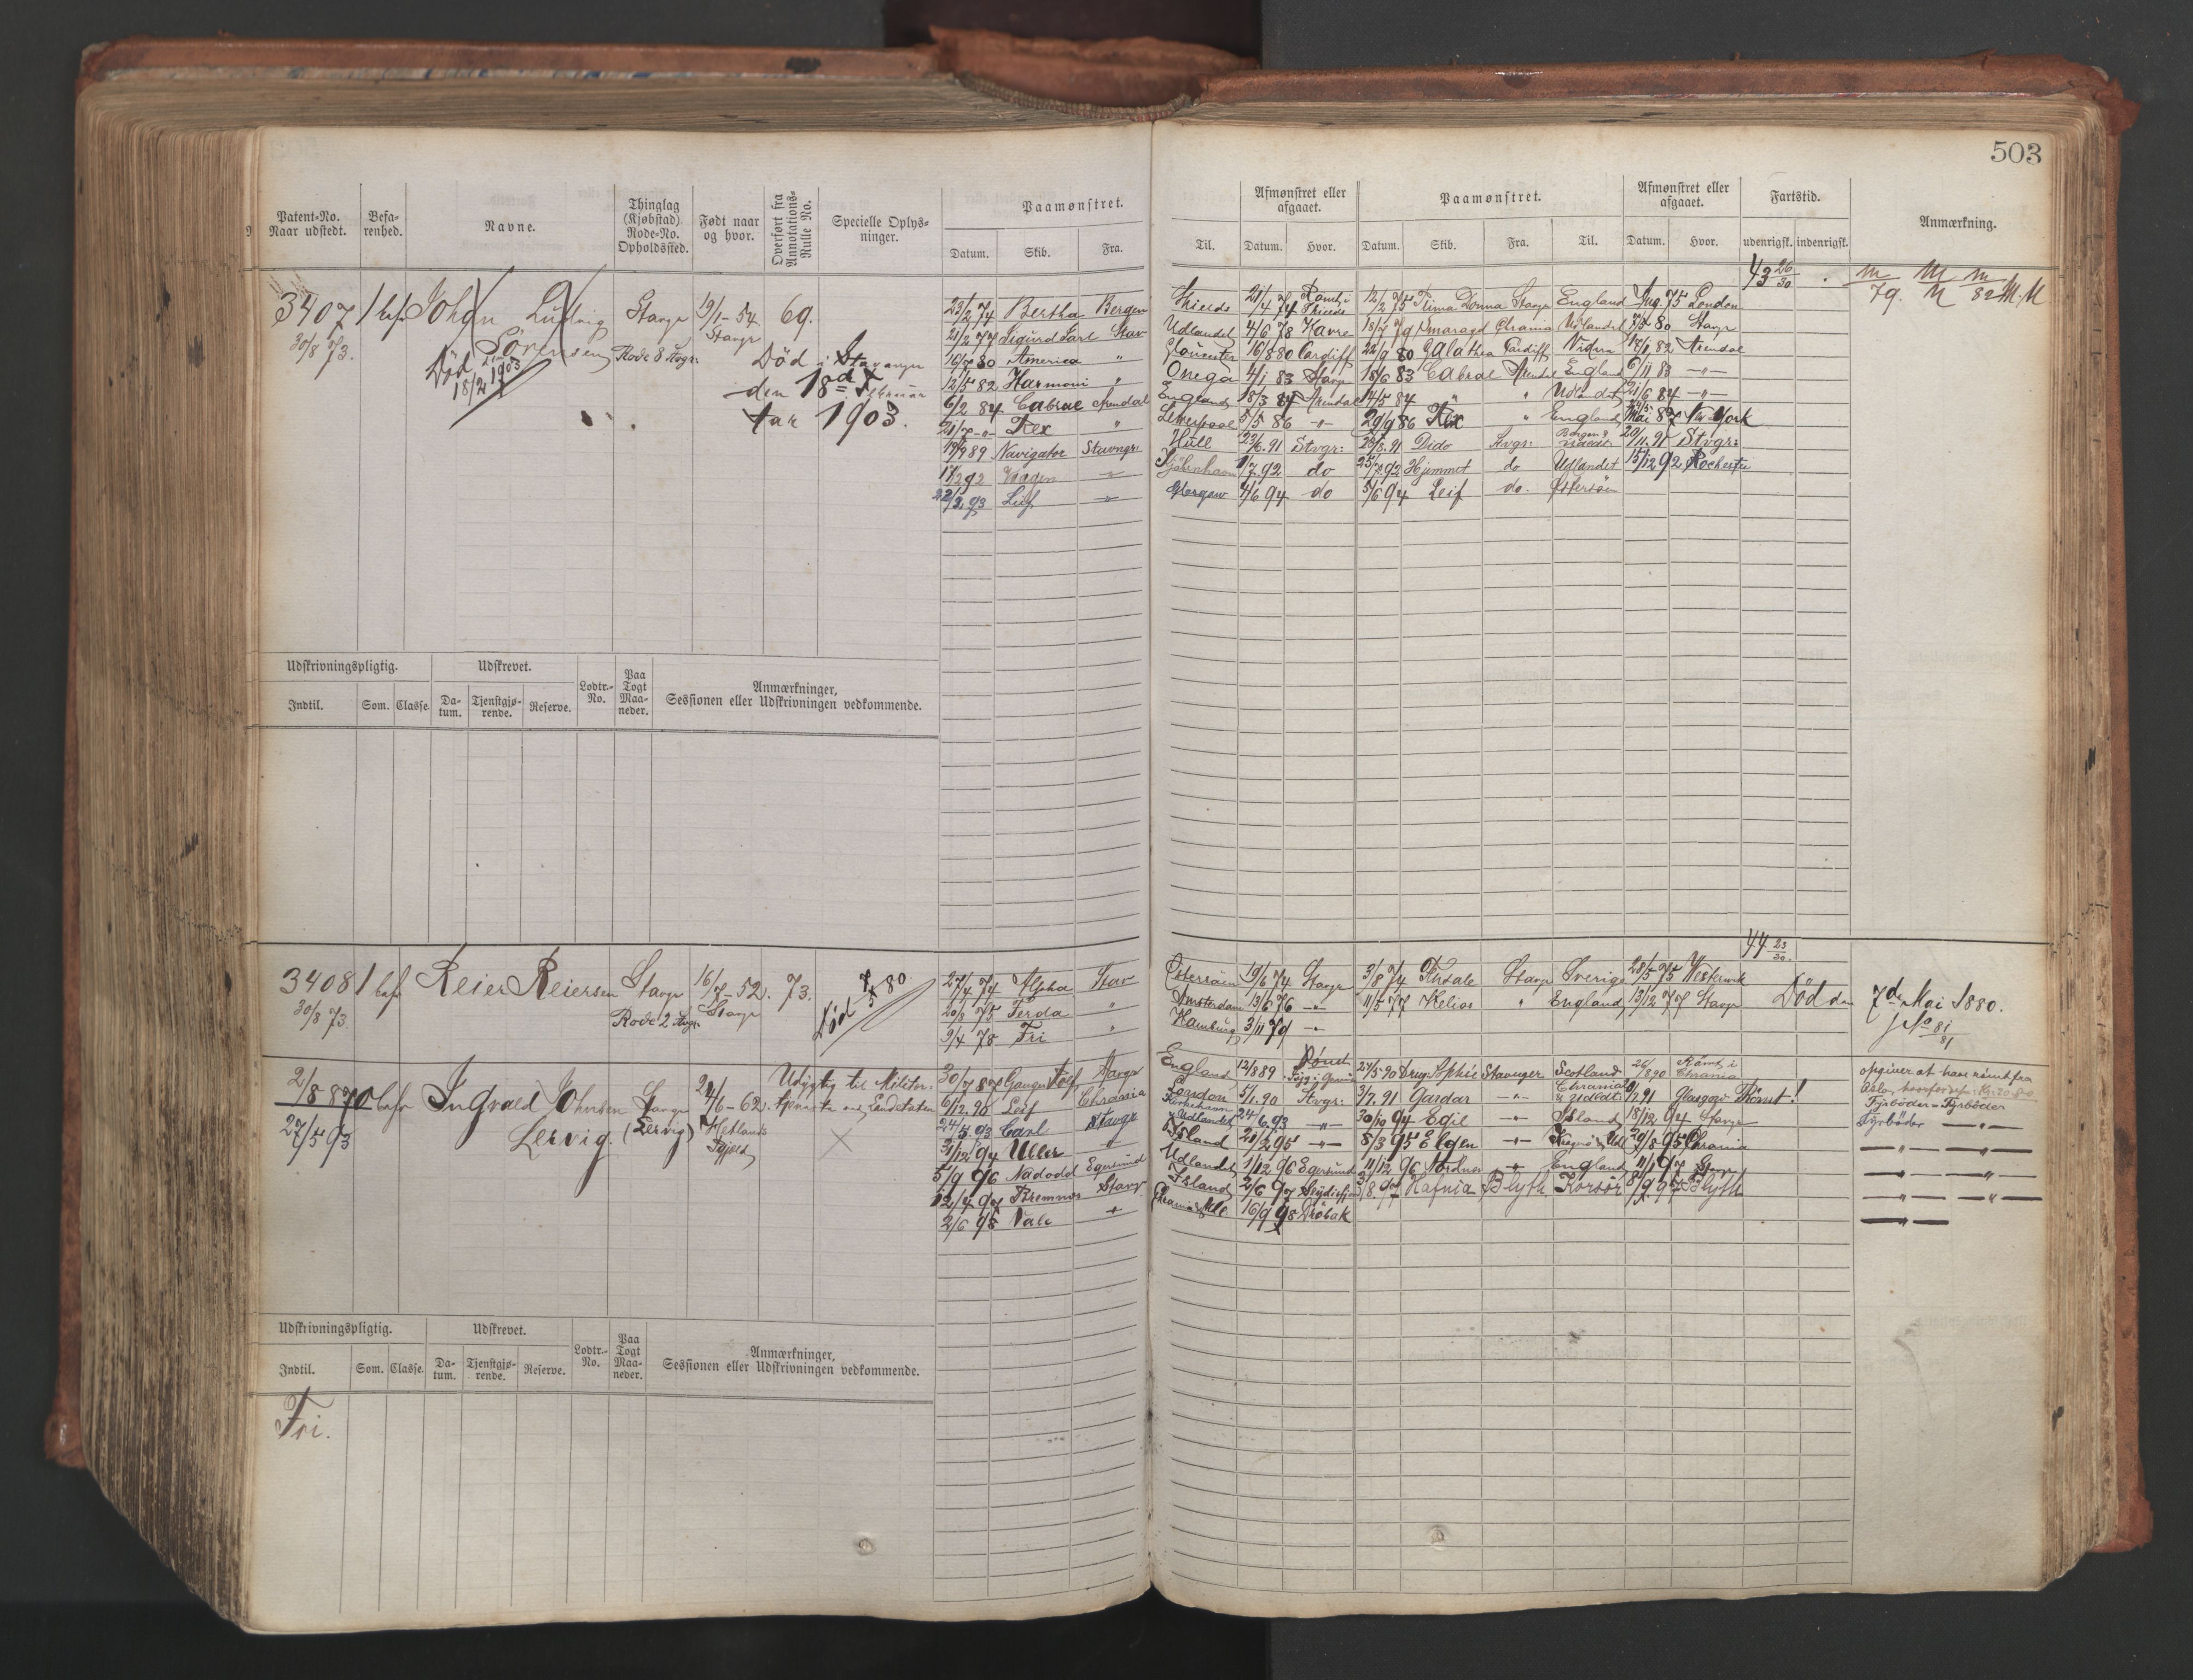 503
Patent-No.
Naar udstedt.
Befa-
renhed.
Navne.
Thinglag
(Kjøbstad)
Rode-No.
Opholdssted.
Født naar
og hvor.
Overført fra
Annotations-
Rulle No.
Specielle Oplys-
ninger.
Paamønstret.
Datum. Skib. Fra.
Til.
Afmønstret eller
afgaaet.
Datum. Hvor.
Paamønstret.
Datum. Skib. Fra. Til.
Afmønstret eller
afgaaet.
Datum. Hvor.
Fartstid.
udenrigsk. indenrigsk.
Anmærkning.
3407 1 bef. Johan Ludvig Stavgr 19/1-54 69.
30/8 73. Sørensen Rode 8 Stvgr: Stavgr
Død 18/2 1903
Død i Stavanger
den 18de Februar
1903.
43 26/30
23/2 74 Bertha Bergen
21/2 77 Sigurd Jarl Stav
10/7 80 America "
12/5 82 Harmoni "
6/2 84 Cabrae Arendal
21/7 -"- Rex "
19/9 89 Navigator Stavngr:
17/2 92 Vaagen -"-
22/3 93 Leif -"-
Shields 21/4 74 Rømt i Shields 12/2 75 Prima Donna Stavgr England Aug. 75 London
Udlandet 4/6 78 Havre 18/7 79 Smaragd Chrania Udlandet 7/5 80 Stavgr
Gloucester 16/8 80 Cardiff 22/9 80 Galathea Cardiff 82 Arendal
Onega 4/1 83 Stavgr 18/6 83 Cabrae Arendal England 6/11 83 -"-
England 18/3 84 Arendal 14/5 84 " " Udlandet 21/6 84 -"-
Liverpool 5/5 86 -"- 29/9 86 Rex " England Mai 87 New-York
Hull 23/6 91 Stvgr: 91 Dido Stvgr: 20/11 91 Stvgr:
Kjøbenhavn 1/7 92 do 25/7 92 Hjemmet do Udlandet 15/12 92 Rochester
Glasgow 4/6 94 do 5/6 94 Leif do. Østersøn
Udskrivningspligtig.
Udskrevet.
Lodtr.-
No.
Paa
Togt
Maa-
neder.
Anmærkninger,
Sessionen eller Udskrivningen vedkommende.
Indtil. Som. Classe. Da-
tum. Tjenstgjø-
rende. Reserve.
44 23/30
3408 1 bef. Reier Reiersen Stavgr 16/7-52. 73.
30/8 73. Rode 2 Stvgr. Stavgr
Død 7/5 80
27/4 74 Alpha Stav
20/3 75 Terda "
9/4 78 Fri "
Østersøen 19/6 74 Stavgr 3/8 74 Stavgr Sverige 28/5 75 Westervik
Amsterdam 13/6 76 -"- 11/5 77 Helios " England 13/12 77 Stavgr
Hamburg 3/11 79 -"-
Død den 7de Mai 1880.
No 81/81
2/8-87 bef. Ingvald Johnsen Stavgr 24/6-62
27/5 93 Lervig. (Lervig) Hetlands
Udygtig til Militær-
30/7 87 Ganger Rolf Stavgr
6/12 90 Leif Chrania
24/5 93 Carl Stavgr
31/12 94 Uller "
5/9 96 Nadodd Egersund
12/4 97 Bremnes Stavgr
2/6 98 Vale "
England 12/8 89 24/5 90 Drug Sophie Stavanger Scotland 26/8 90 Rømt i Chrania
London 5/1. 90 Stvgr: 3/7. 91 Gardar -"- 91 Glasgow Rømt!
Udlandet 24/6. 93 -"- 30/10 94 Egil -"- Island 18/12 94 Stavgr
Island 21/2 95 -"- 8/3 95 Elgen -"- 29/8 95 Chrania
Udlandet 1/12 96 Egersund 11/12 96 Norkus -"- England 11/1 97 Stavgr
Island 2/6 97 Seydisfjord 3/8 97 Hafnia Blyth Korsør 8/9 97 Blyth
16/9 98 Drøbak
opgiver at have rømt fra
Fyrbøder - Fyrbøder
Fyrbøder -"-
-"- -"-
-"- -"-
-"- -"-
-"-
Udskrivningspligtig.
Udskrevet.
Lodtr.-
No.
Paa
Togt
Maa-
neder.
Anmærkninger,
Sessionen eller Udskrivningen vedkommende.
Indtil. Som. Classe. Da-
tum. Tjenstgjø-
rende. Reserve.
Fri.